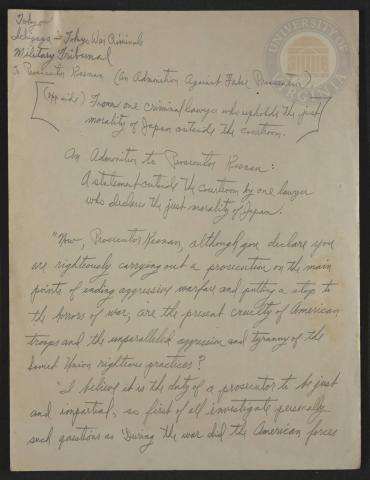 Tokyo
Ichigaya - Tokyo War Criminals
Military Tribunal
To Prosecutor Keenan (An Admonition Against False Prosecution)
(opp. side) From one criminal lawyer who upholds the just
morality of Japan outside the courtroom.
An Admonition to Prosecutor Keenan:
A statement outside the courtroom by one lawyer
who declares the just morality of Japan.
"Now, Prosecutor Keenan, although you declare you
are righteously carrying out a prosecution on the main
points of ending aggressive warfare and putting a stop to
the horrors of war, are the present cruelty of American
troops and the unparalleled aggression and tyranny of the
Soviet Union righteous practices?
"I believe it is the duty of a prosecutor to be just
and impartial, so first of all investigate personally
such questions as 'During the war did the American forces
UNIVERSITY OF
VIRGINIA